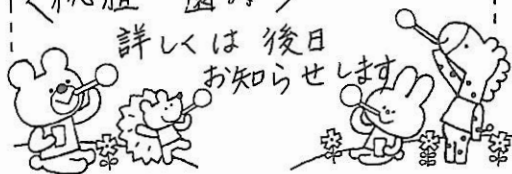 詳しくは後日
お知らせします